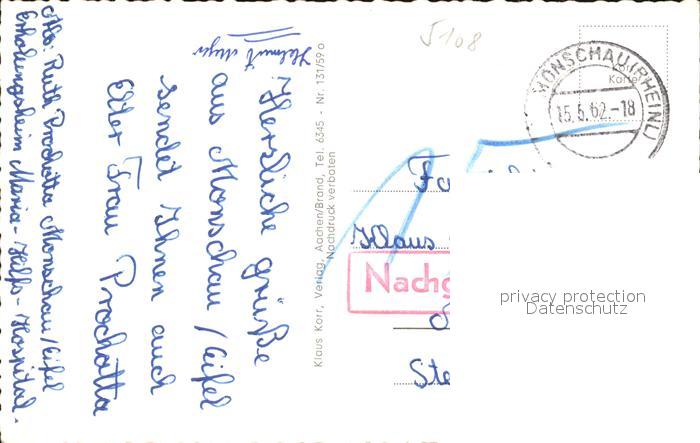 Herzliche grüße
aus Monschau/Eifel
sendet Ihnen auch
Frau Prochatta
Abs: Ruth Prochatta Monschau/Eifel
Erholungsheim Maria-Hilfs-Hospital.
Klaus Korr, Verlag, Aachen/Brand, Tel. 6345 - Nr. 131/59 o
Nachdruck verboten
J 108
MONSCHAU (RHEINL)
15.5.62.-18
Fa
Klaus
Nachg
Ste
privacy protection
Datenschutz